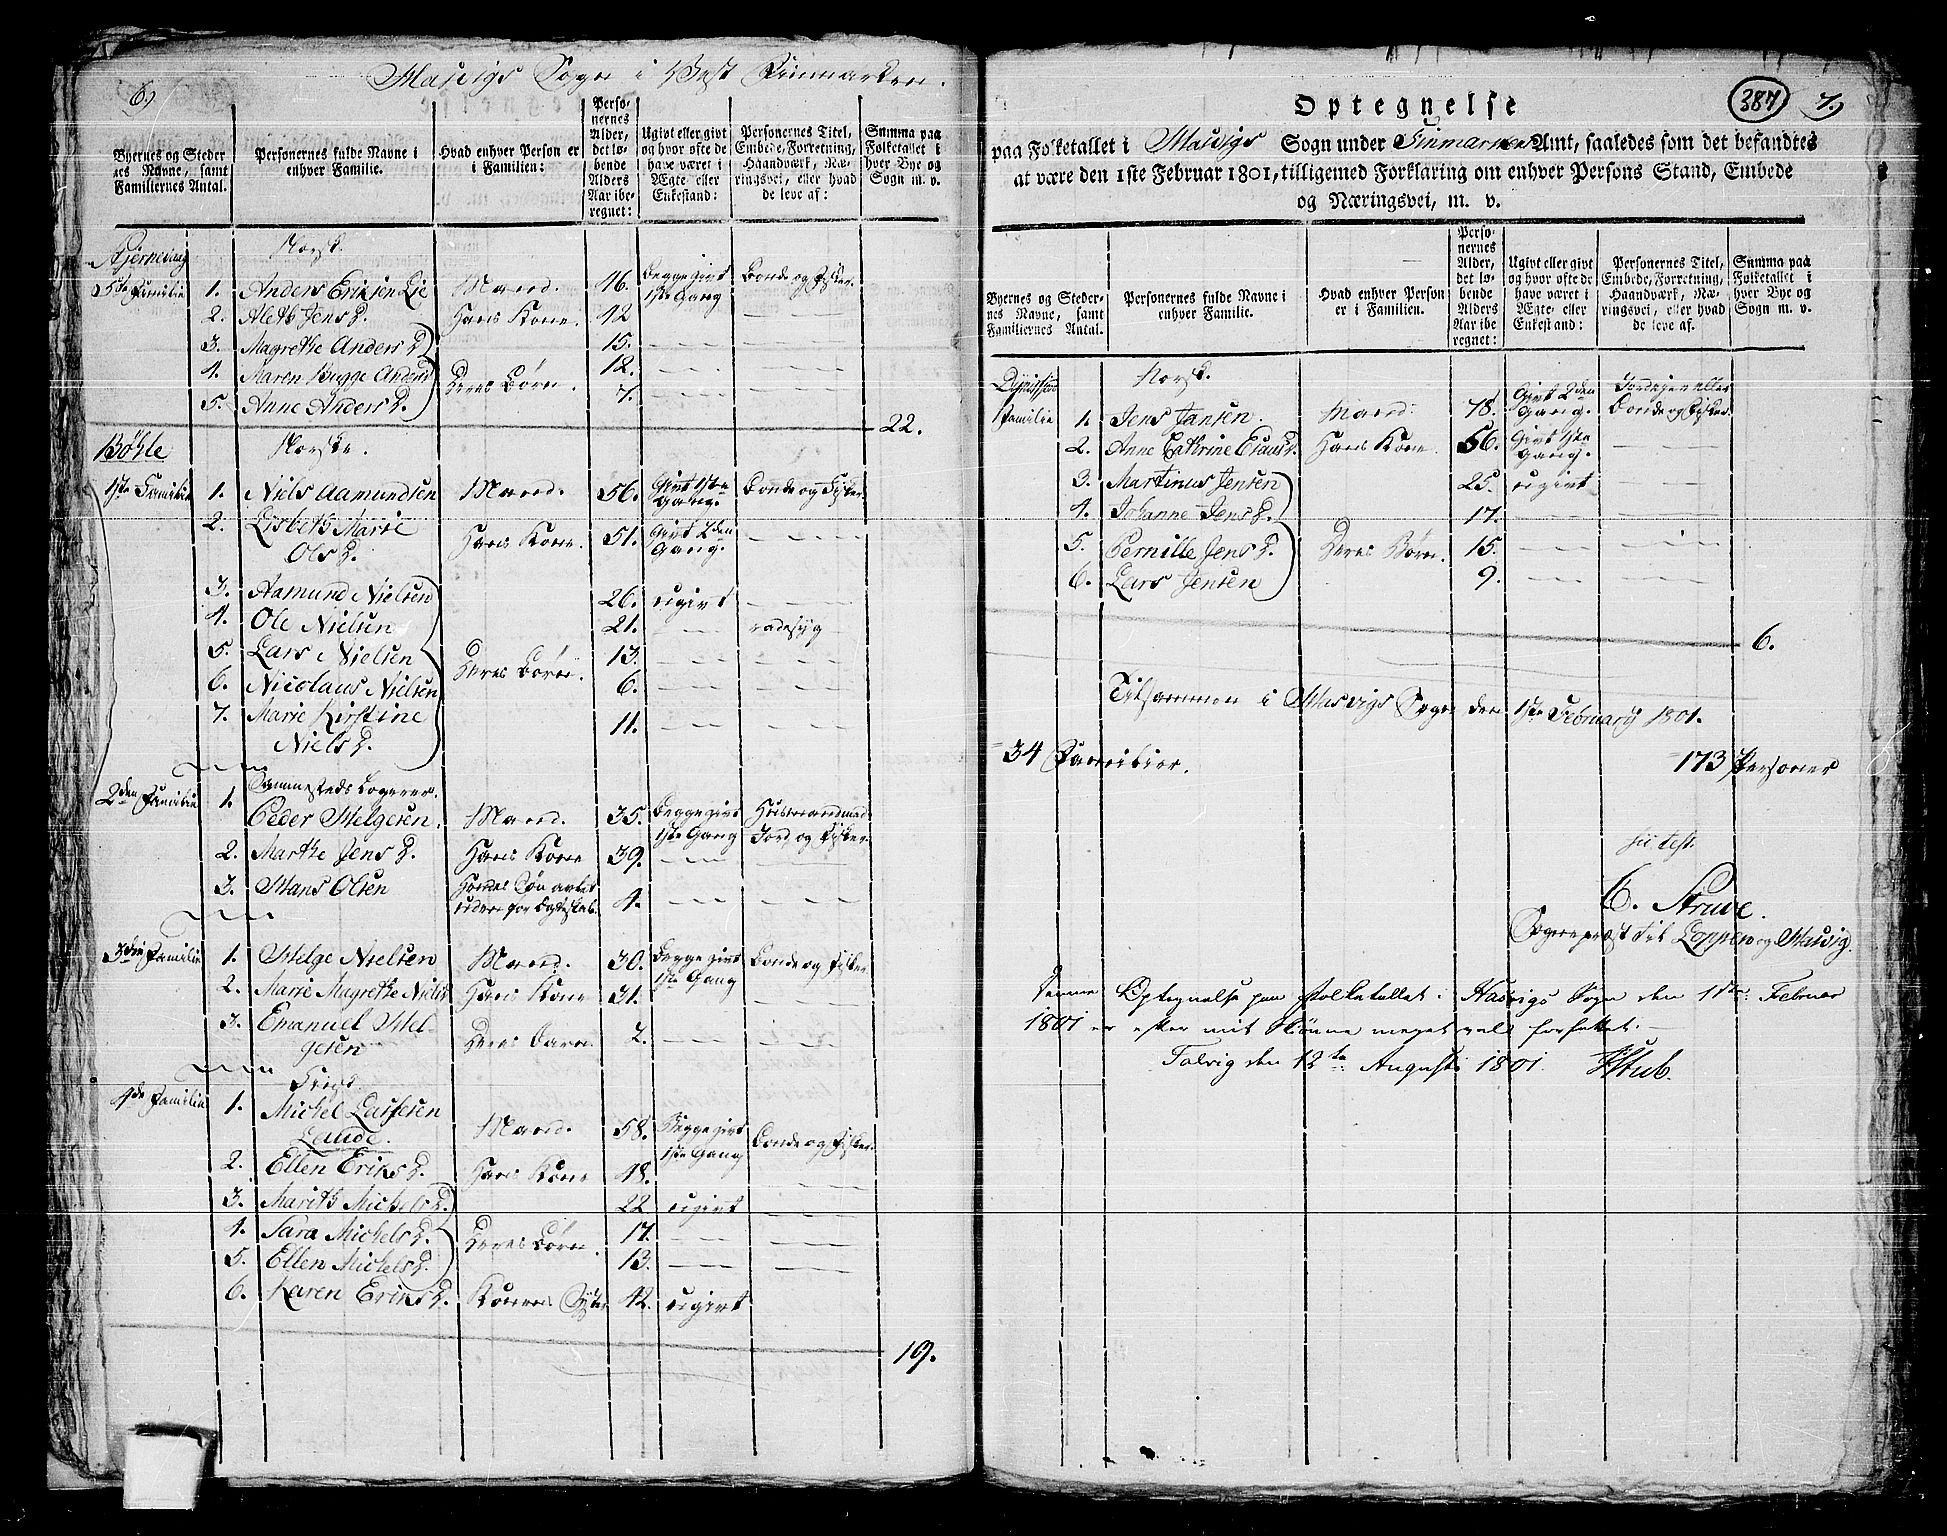 6,
Hasvigs Sogn i Vest Finmarken.
Byernes og Steder
nes Navne, samt
Familiernes Antal.
Personernes fulde Navne i
enhver Familie.
Hvad enhver Person er
i Familien:
Perso-
nernes
Alder,
det lø-
bende
Alders
Aar ibe-
regnet:
Ugivt eller givt
og hvor ofte de
have været i
Ægte- eller
Enkestand:
Personernes Titel,
Embede, Forretning,
Haandværk, Næ-
ringsvei, eller hvad
de leve af:
Summa paa
Folketallet i
hver Bye og
Sogn m. v.
Norsk.
5te Familie 1. Anders Eriksen Lie Mand. 46. Begge givt 1ste Gang Bonde og Fisker.
2. Aleth Jens D. Hans Kone. 42 — —
3. Magrethe Anders D. 15. — —
4. Maren Bugge Anders D. Deres Børn. 12. — —
5. Anne Anders D. 7. — —
22.
Bøhle Norske.
1ste Familie 1. Niels Aamundsen Mand. 56. Givt 1ste Gang. Bonde og Fisker
2. Lisbeth Marie
Ols D. Hans Kone. 51. Givt 2den Gang. — —
3. Aamund Nielsen 26. ugivt — —
4. Ole Nielsen 21. — radesyg
5. Lars Nielsen Deres Børn. 13. — —
6. Nicolaus Nielsen 6. — —
7. Marie Kirstine
Niels D. 11. — —
2den Familie Sammesteds Logerer.
1. Peder Helgesen. Mand. 35. Begge givt 1ste Gang Huusmand med Jord og Fisker.
2. Marthe Jens D. Hans Kone 39. — —
3. Hans Olsen Hendes Søn avlet uden for Egteskab. 4. — —
3die Familie 1. Helge Nielsen Mand. 30. Begge givt 1ste Gang Bonde og Fisker
2. Marie Magrethe Niels D. Hans Kone 31. — —
3. Emanuel Hel-
gesen Deres Barn. 2. — —
4de Familie 1. Michel Larsen
Mand. 58. Begge givt 1ste Gang Bonde og Fisker
2. Ellen Eriks D. Hans Kone 48. — —
3. Marith Michels D. 22 ugivt — —
4. Sara Michels D. Deres Børn. 17. — —
5. Ellen Michels D. 13. — —
6. Karen Eriks D. Konens Syster 42. ugivt
19.
387
7,
Optegnelse
paa Folketallet i Hasvigs Sogn under Finmarkens Amt, saaledes som det befandtes
at være den 1ste Februar 1801, tilligemed Forklaring om enhver Persons Stand, Embede
og Næringsvei, m. v.
Byernes og Steder-
nes Navne, samt
Familiernes Antal.
Personernes fulde Navne i
enhver Familie.
Hvad enhver Person
er i Familien.
Perso-
nernes
Alder,
det lø-
bende
Alders
Aar ibe
regnet:
Ugivt eller givt
og hvor ofte de
have været i
Ægte- eller
Enkestand:
Personernes Titel,
Embede, Forretning,
Haandværk, Næ-
ringsvei, eller hvad
de leve af.
Summa paa
Folketallet i
hver Bye og
Sogn m. v.
Norsk.
1 Familie 1. Jens Jansen. Mand. 78. Givt 2den Gang. Jordejer eller Bonde og Fisker.
2. Anne Cathrine Claus D. Hans Kone. 56. Givt 1ste Gang. — —
3. Martinus Jensen 25. ugivt — —
4. Johanne Jens D. 17. — —
5. Pernille Jens D. Deres Børn. 15. — —
6. Lars Jensen 9. — —
6.
Tilsammen i Hasvigs Sogn den 1ste February 1801.
34 Familier. 173 Personer
C. Strube.
Sognepræst til Loppen og Hasvig.
Denne Optegnelse paa Folketallet i Hasvigs Sogn den 1ste Februar
1801 er efter mit Skiønne meget vel forfattet.
Talvig den 12te Augusti 1801. Stub.